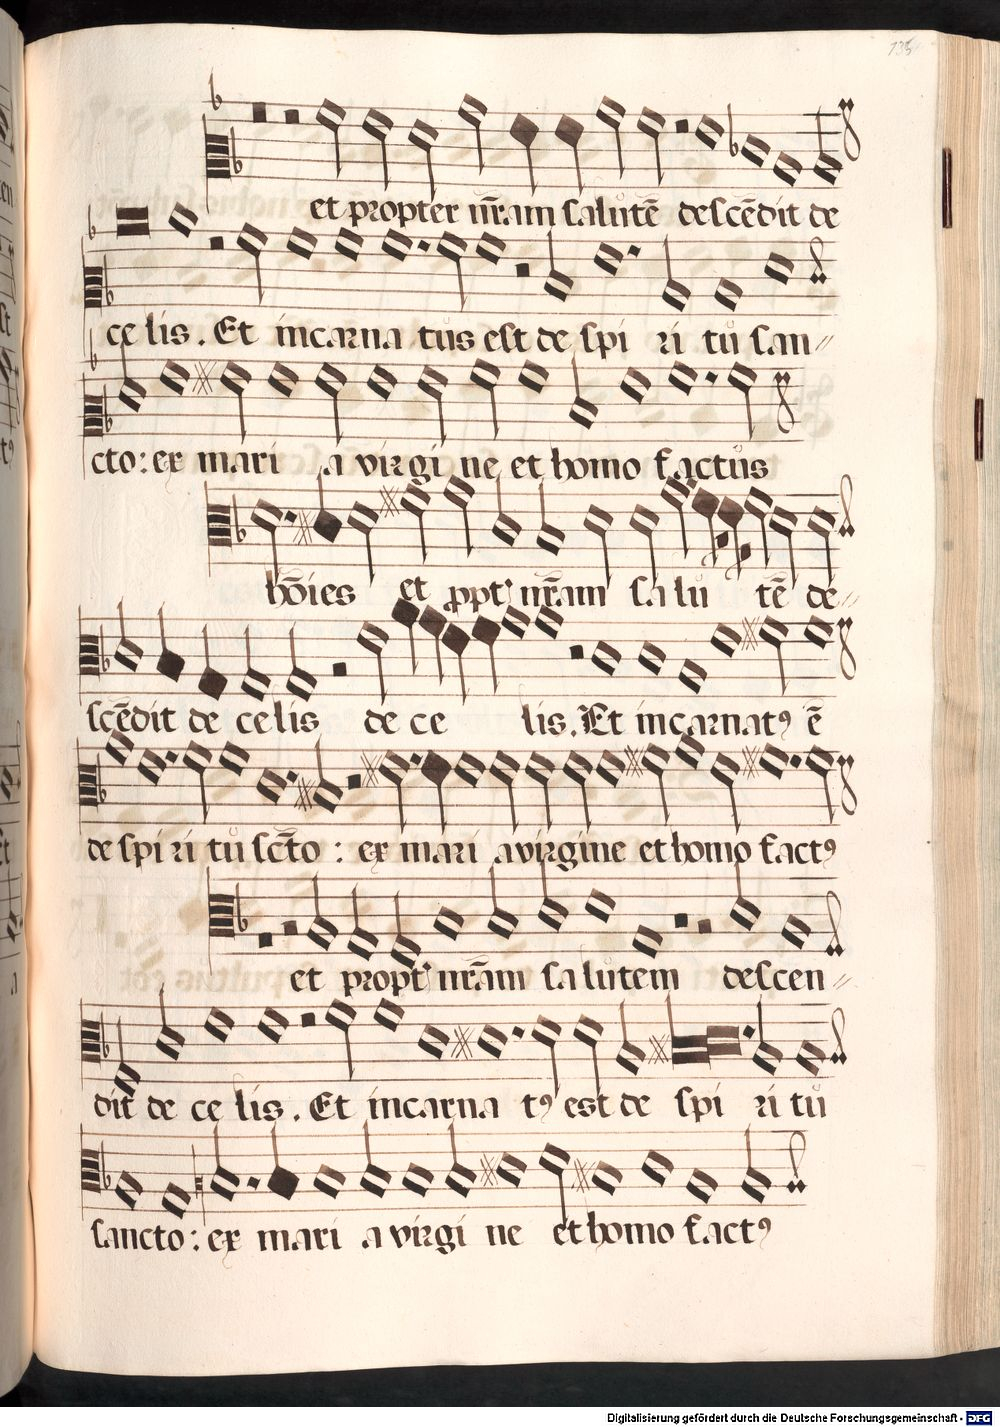 135
et propter nr̃am salutẽ descẽdit de
ce lis. Et incarna tus est de spi ri tů san〃
cto: ex mari a virgi ne et homo factus
hõies et ꝓpt' nr̃am salu tẽ de〃
scẽdit de celis de ce lis. Et incarnatꝰ ẽ
de spi ri tů sct̃o : ex mari a virgine et homo factꝰ
et propt' nr̃am salutem descen〃
dit de ce lis. Et incarna tꝰ est de spi ri tů
sancto: ex mari a virgi ne et homo factꝰ
Digitalisierung gefördert durch die Deutsche Forschungsgemeinschaft - DFG